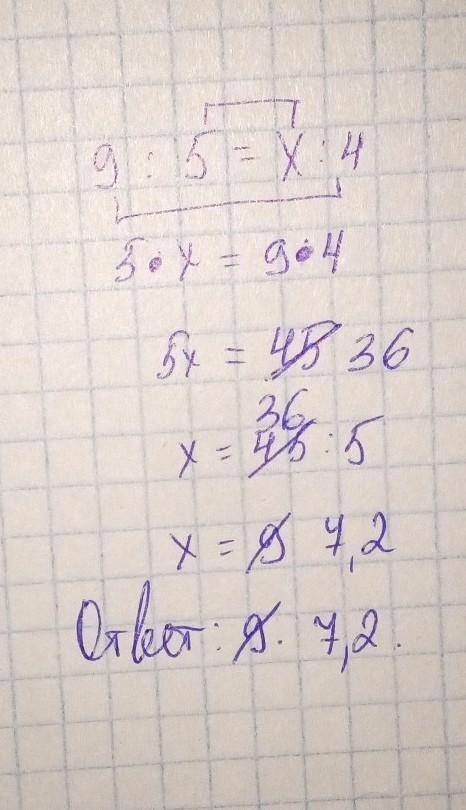 9 : 5 = x : 4
5 • x = 9 • 4
5x = 45 36
36
x = 45 : 5
x = 9 7,2
Ответ: 9. 7,2.